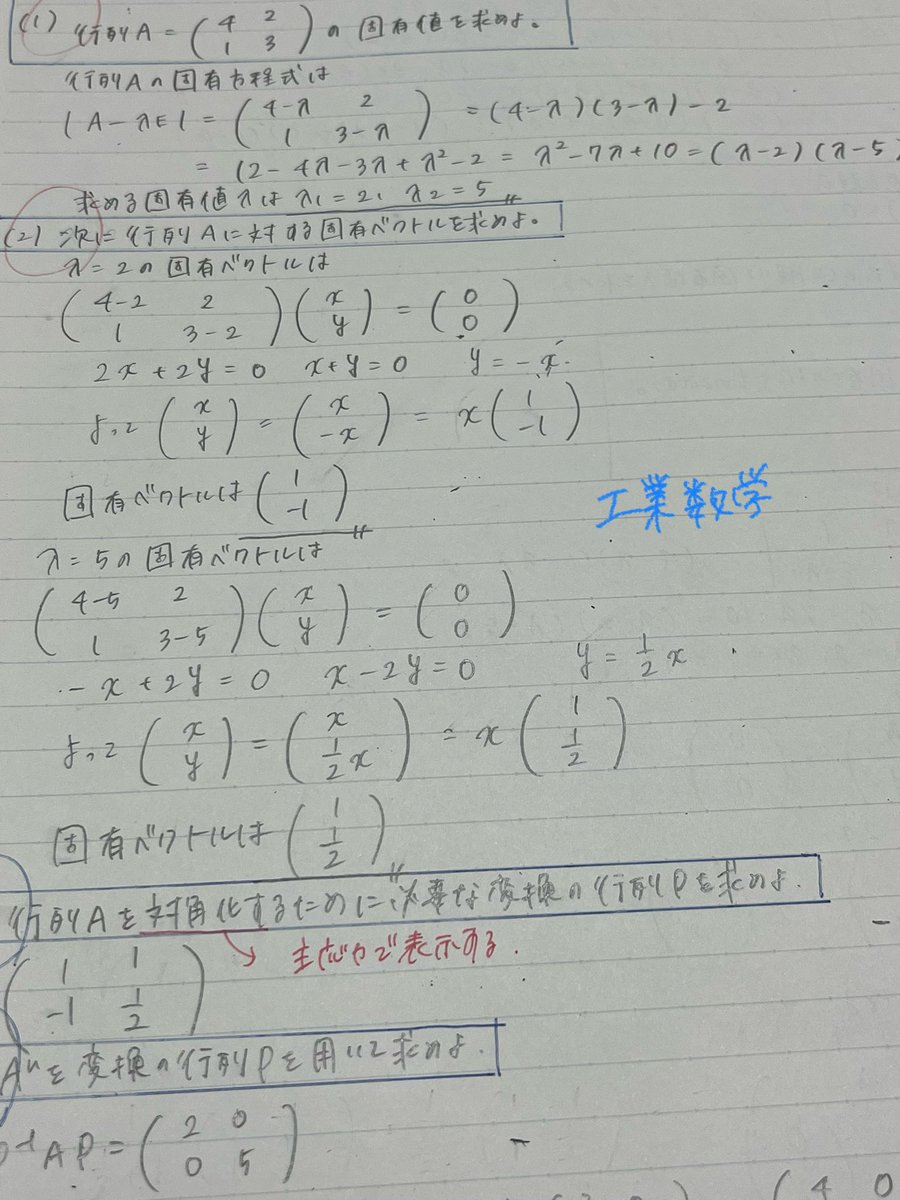 (1) 行列A = ( 4 2 ) の 固有値を求めよ。
( 1 3 )
行列Aの固有方程式は
|A-λE| = ( 4-λ 2 ) = (4-λ)(3-λ)-2
( 1 3-λ )
= 12-4λ-3λ+λ²-2 = λ²-7λ+10 = (λ-2)(λ-5)
求める固有値λは λ1=2, λ2=5
(2) 次に行列Aに対する固有ベクトルを求めよ。
λ=2の固有ベクトルは
( 4-2 2 ) ( x ) = ( 0 )
( 1 3-2 ) ( y ) ( 0 )
2x+2y=0 x+y=0 y=-x
よって ( x ) = ( x ) = x ( 1 )
( y ) ( -x ) ( -1 )
固有ベクトルは ( 1 )
( -1 )
工業数学
λ=5の固有ベクトルは
( 4-5 2 ) ( x ) = ( 0 )
( 1 3-5 ) ( y ) ( 0 )
-x+2y=0 x-2y=0 y=1/2x
よって ( x ) = ( x ) = x ( 1 )
( y ) ( 1/2x ) ( 1/2 )
固有ベクトルは ( 1 )
( 1/2 )
行列Aを対角化するために必要な変換の行列Pを求めよ.
( 1 1 )
( -1 1/2 )
表示する.
Aⁿを変換の行列Pを用いて求めよ.
AP = ( 2 0 )
( 0 5 )
( 4 0